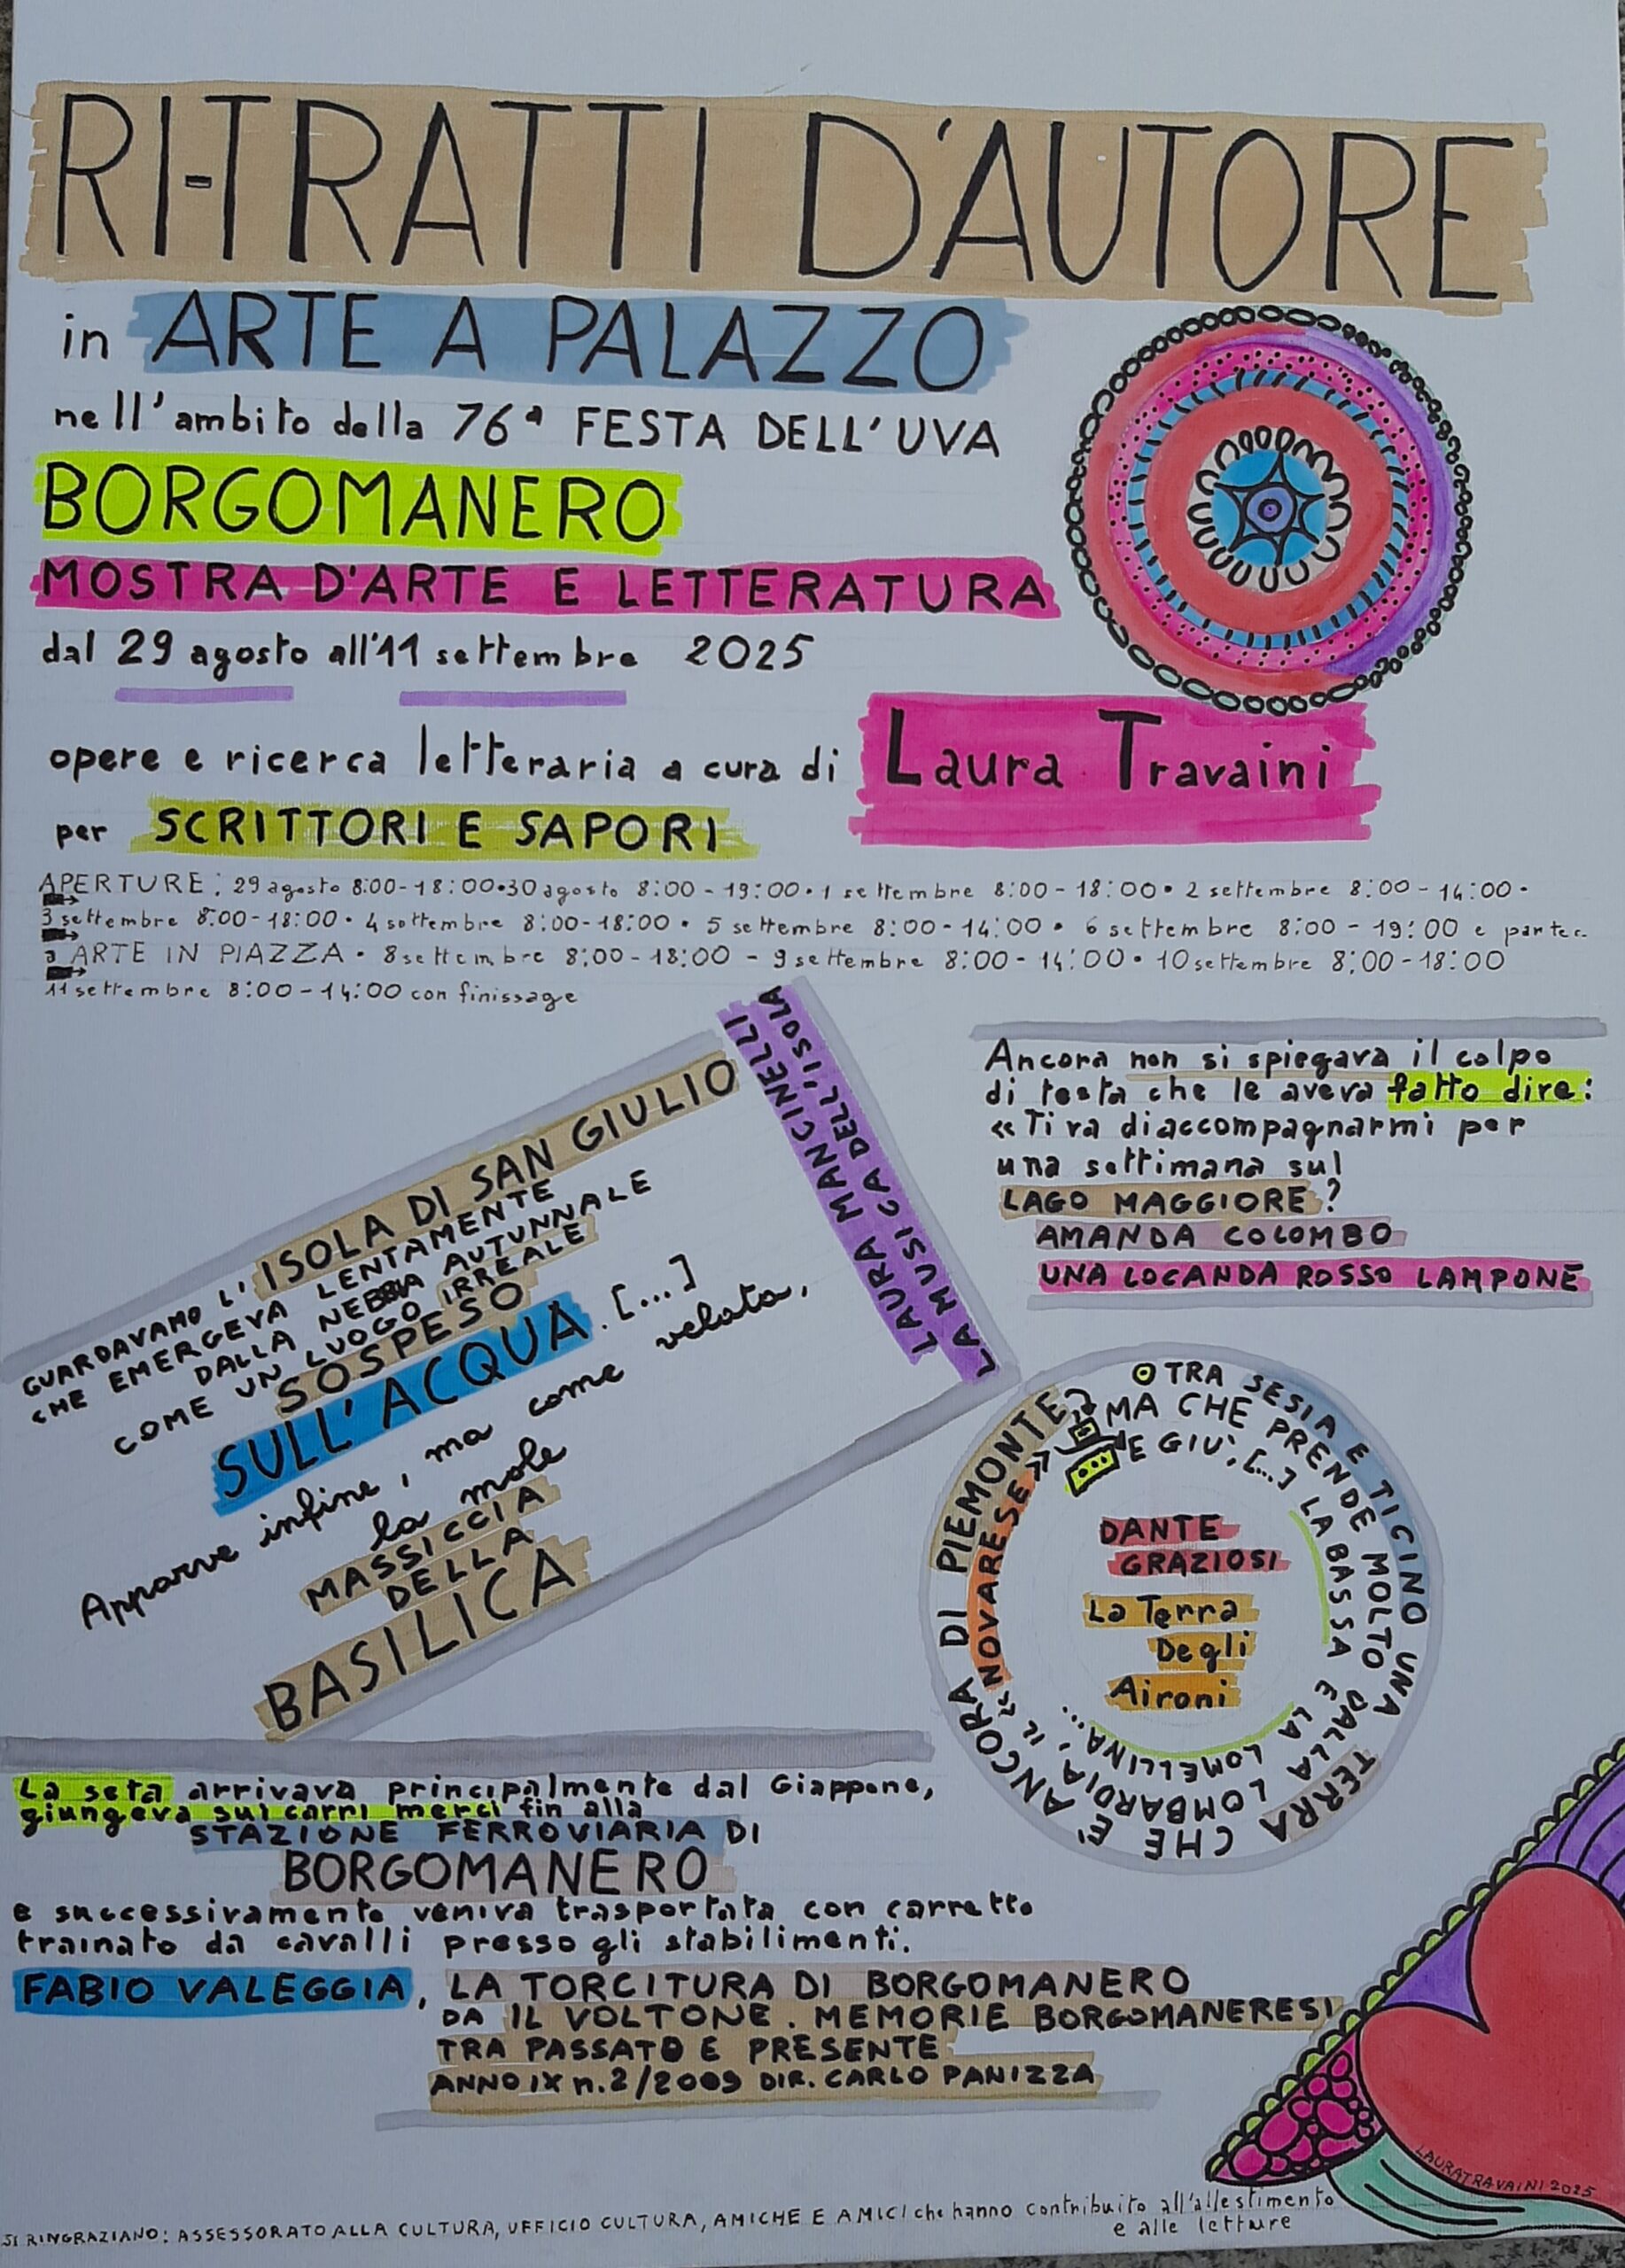 RI-TRATTI D'AUTORE
in ARTE A PALAZZO
nell'ambito della 76ª FESTA DELL'UVA
BORGOMANERO
MOSTRA D'ARTE E LETTERATURA
dal 29 agosto all'11 settembre 2025
opere e ricerca letteraria a cura di Laura Travaini
per SCRITTORI E SAPORI
APERTURE: 29 agosto 8:00-18:00•30 agosto 8:00-19:00•1 settembre 8:00-18:00•2 settembre 8:00-14:00•
3 settembre 8:00-18:00•4 settembre 8:00-18:00•5 settembre 8:00-14:00•6 settembre 8:00-19:00 e partec.
a ARTE IN PIAZZA•8 settembre 8:00-18:00-9 settembre 8:00-14:00•10 settembre 8:00-18:00
11 settembre 8:00-14:00 con finissage
GUARDAVAMO L'ISOLA DI SAN GIULIO
CHE EMERGEVA LENTAMENTE
DALLA NEBBIA AUTUNNALE
COME UN LUOGO IRREALE
SOSPESO
SULL'ACQUA. [...]
Apparve infine, ma come velata,
la mole
MASSICCIA
DELLA
BASILICA
LAURA MANCINELLI
LA MUSICA DELL'ISOLA
Ancora non si spiegava il colpo
di testa che le aveva fatto dire:
«Ti va di accompagnarmi per
una settimana sul
LAGO MAGGIORE?
AMANDA COLOMBO
UNA LOCANDA ROSSO LAMPONE
TRA SESIA E TICINO UNA TERRA CHE È ANCORA DI PIEMONTE
MA CHE PRENDE MOLTO DALLA LOMBARDIA, IL «NOVARESE»
E GIÙ, [...] LA BASSA E LA LOMELLINA...
DANTE
GRAZIOSI
La Terra
Degli
Aironi
La seta arrivava principalmente dal Giappone,
giungeva sui carri merci fin alla
STAZIONE FERROVIARIA DI
BORGOMANERO
e successivamente veniva trasportata con carretto
trainato da cavalli presso gli stabilimenti.
FABIO VALEGGIA, LA TORCITURA DI BORGOMANERO
DA IL VOLTONE. MEMORIE BORGOMANERESI
TRA PASSATO E PRESENTE
ANNO IX n.2/2009 DIR. CARLO PANIZZA
LAURA TRAVAINI 2025
SI RINGRAZIANO: ASSESSORATO ALLA CULTURA, UFFICIO CULTURA, AMICHE E AMICI che hanno contribuito all'allestimento
e alle letture